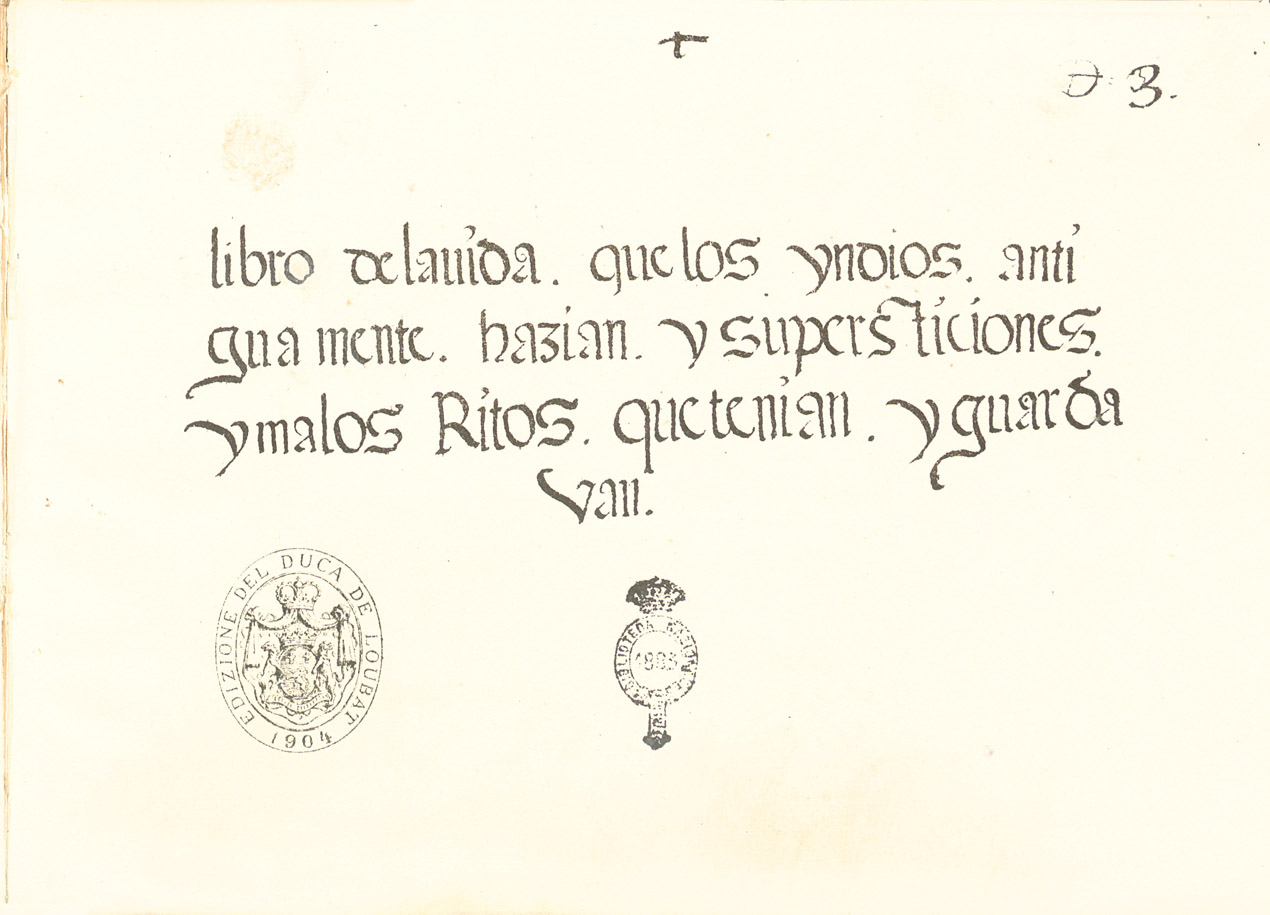 +
D. 3.
libro delauida. quelos yndios. anti
guamente. hazian. y supersticiones.
ymalos Ritos. quetenian. y guarda
van.
EDIZIONE DEL DUCA DE LOUBAT
1904
BIBLIOTECA NAZION